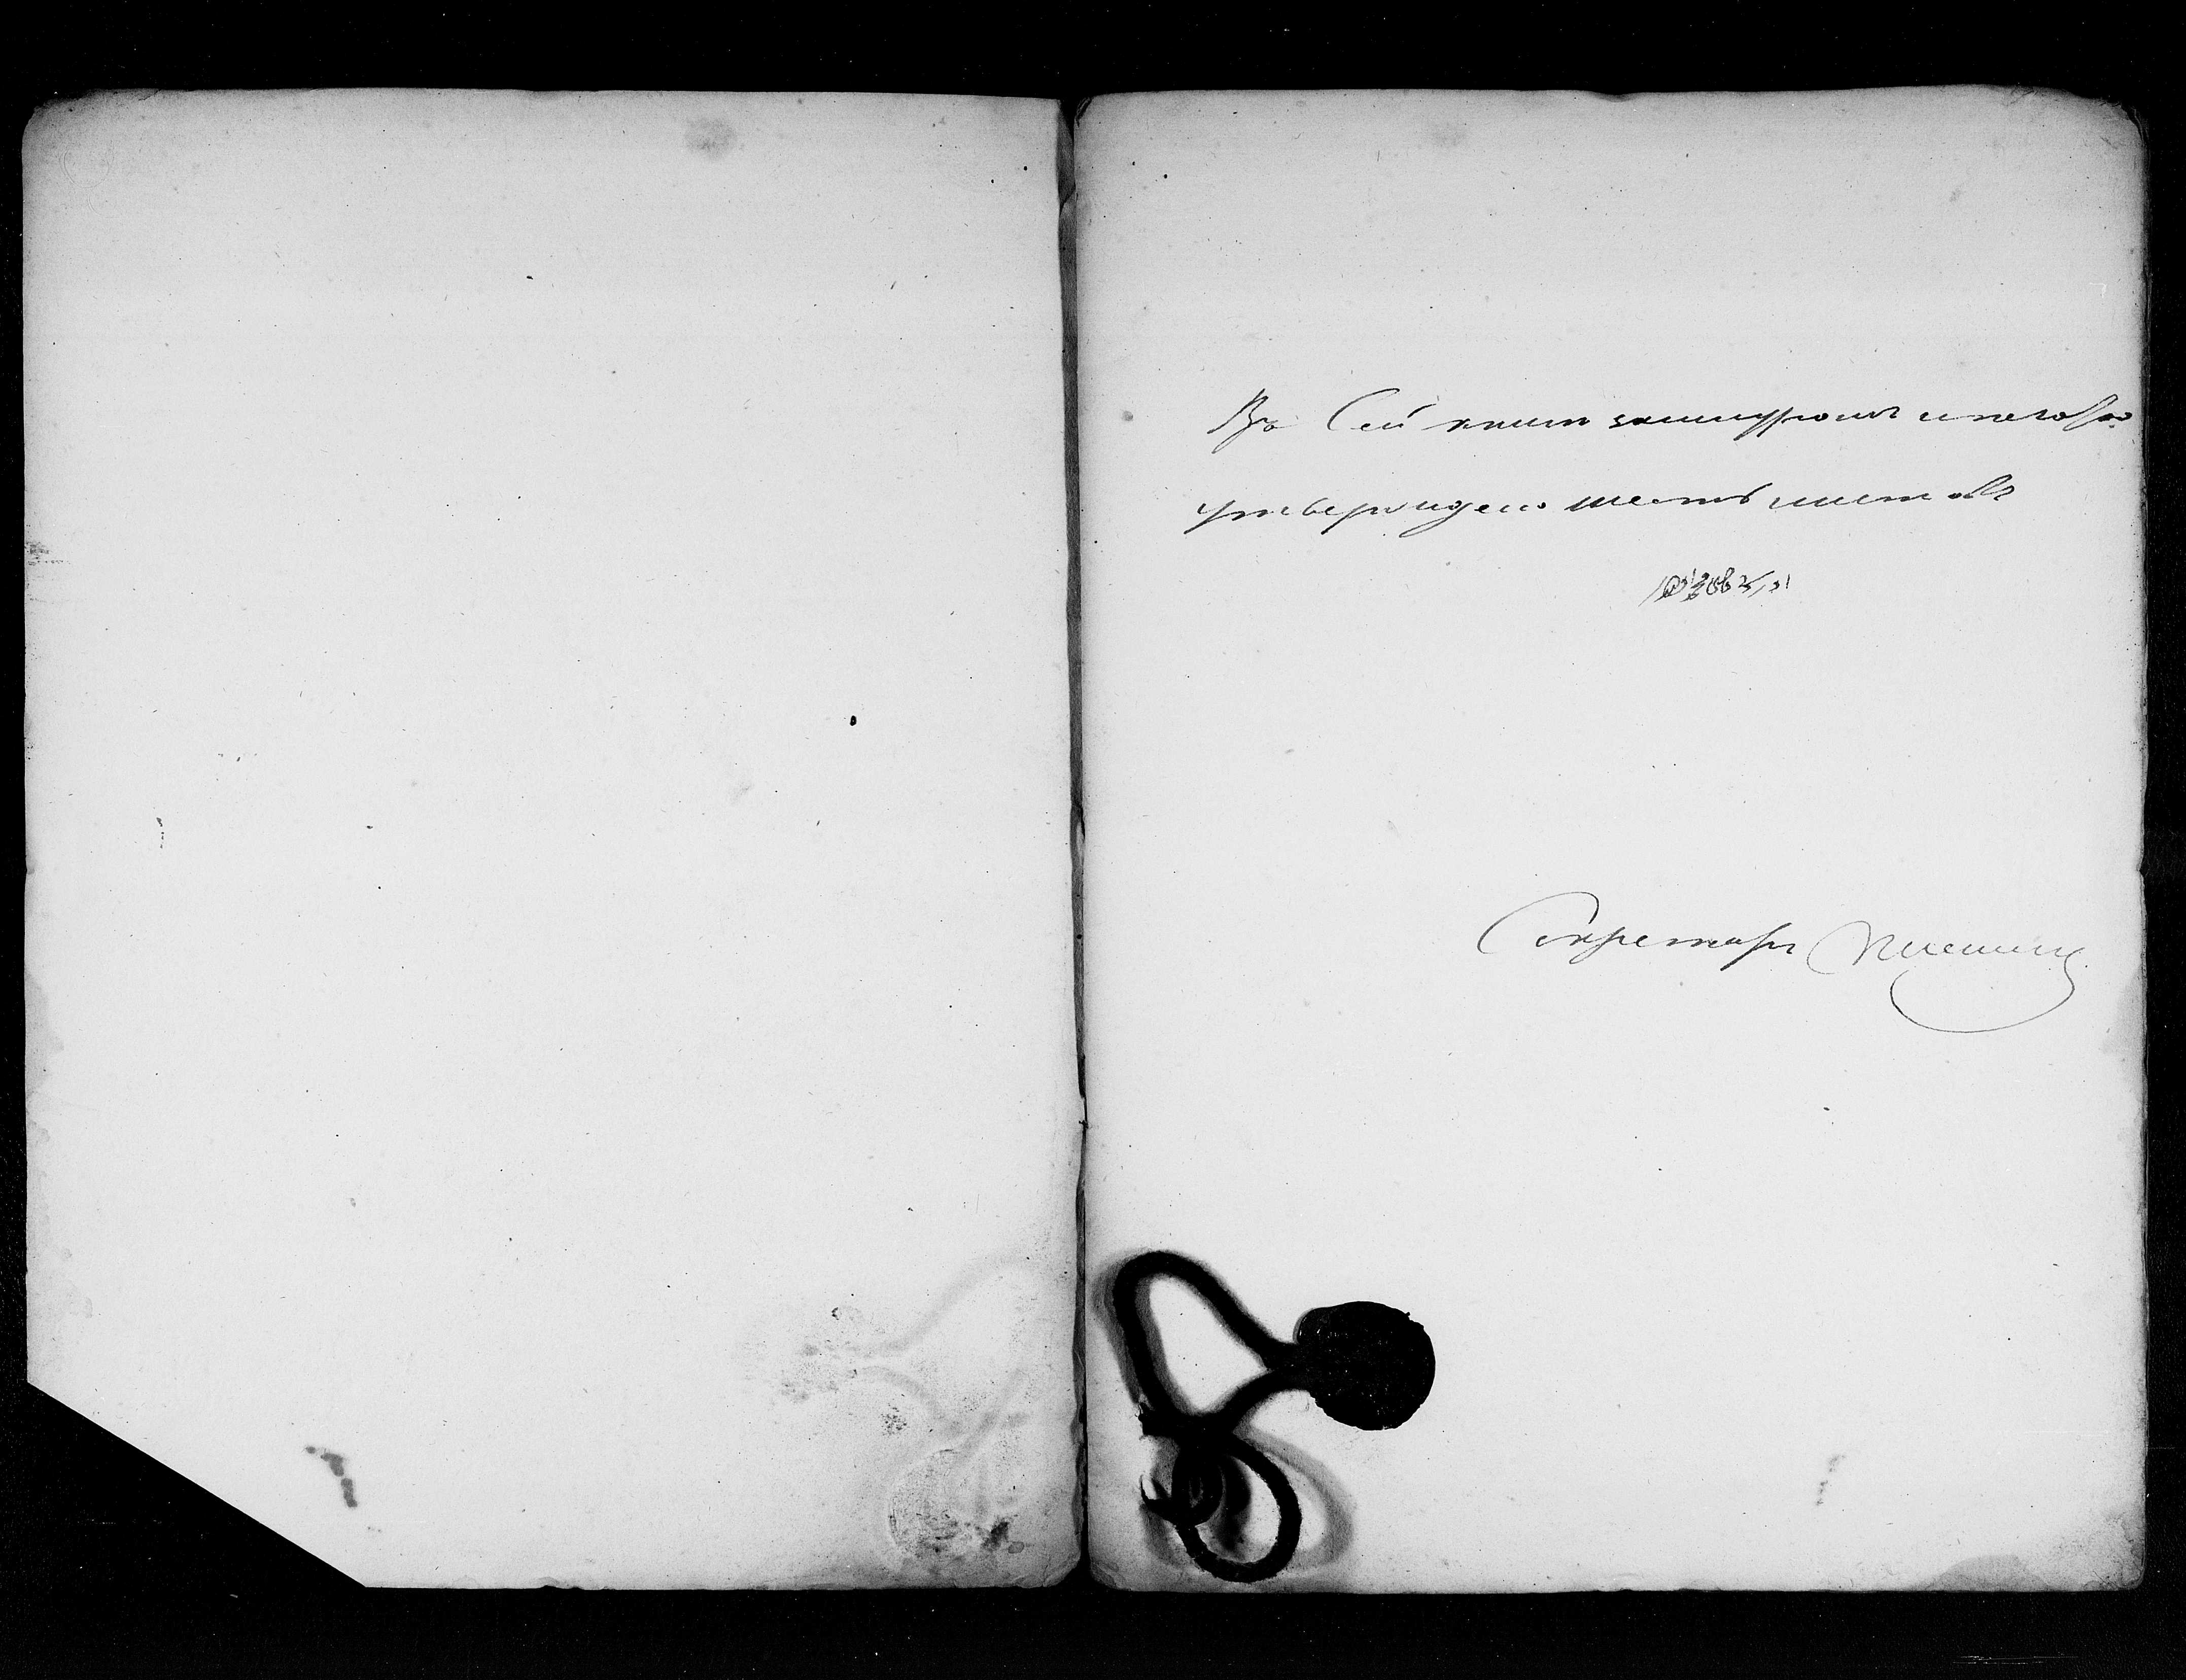 Въ Сей книгѣ зашнурованъ и печатью
утверждено шесть листовъ
Секретарь